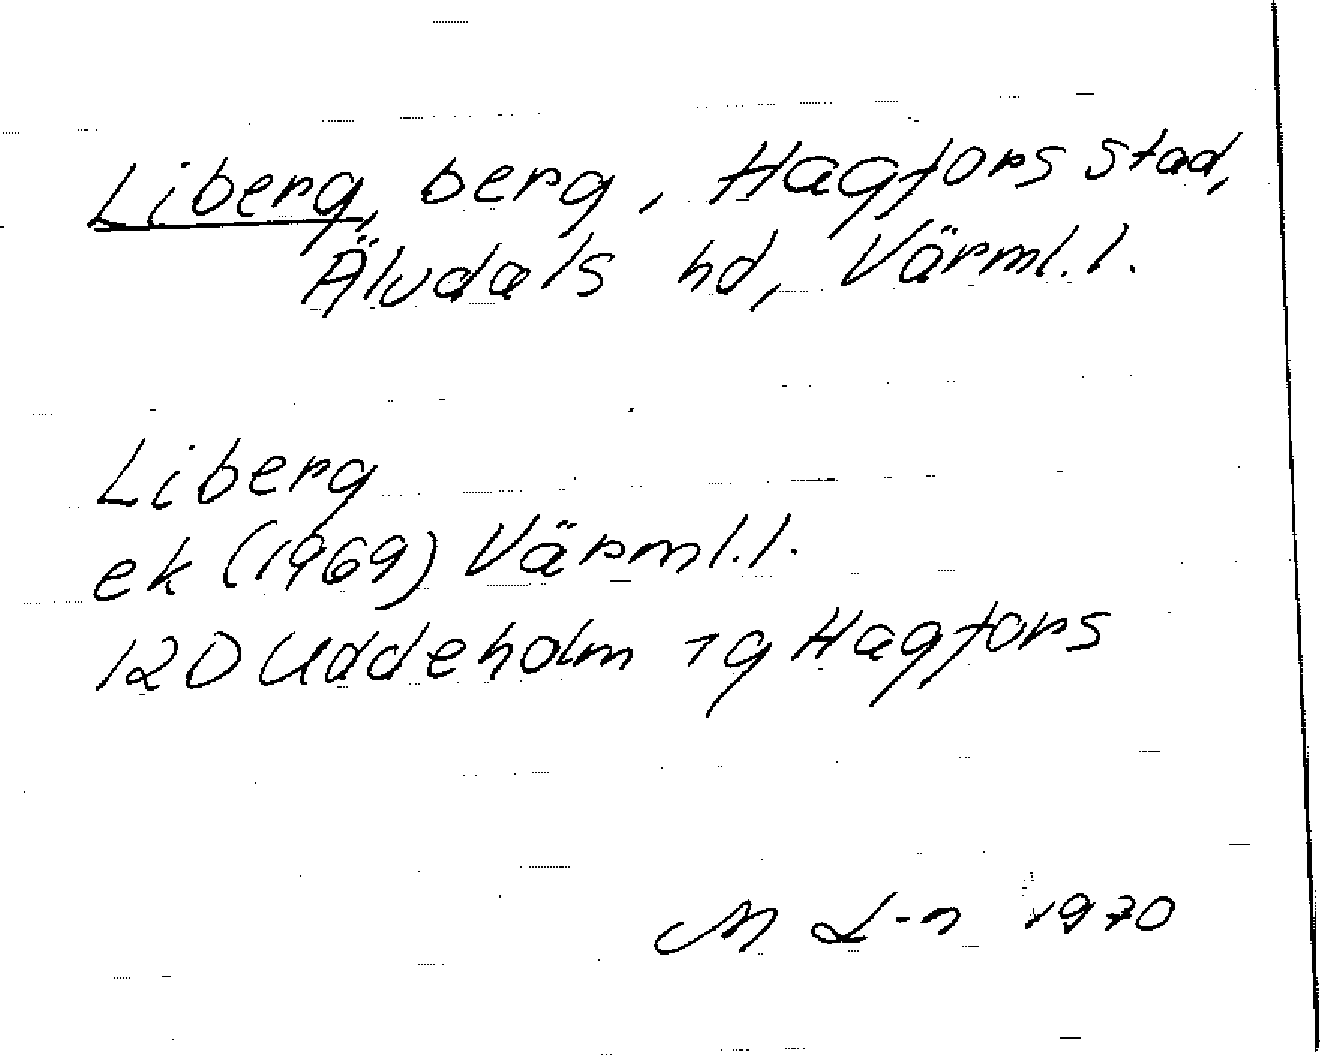 Liberg, berg, Hagfors stad,
Älvdals hd, Värml.l.
Liberg
ek (1969) Värml.l.
12D Uddeholm 7g Hagfors
M L-n 1970